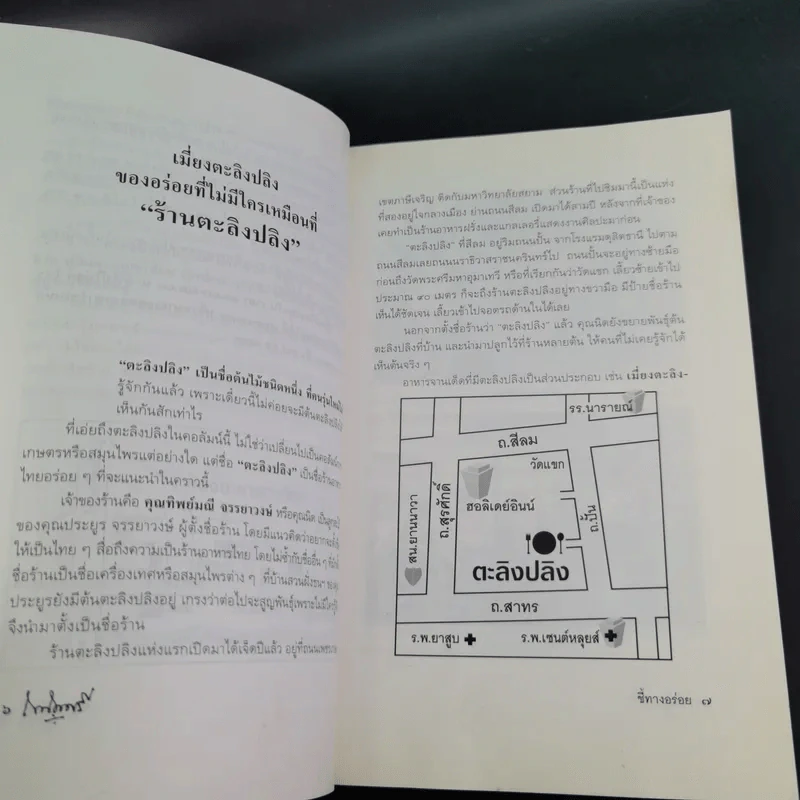 เมี่ยงตะลิงปลิง
ของอร่อยที่ไม่มีใครเหมือนที่
“ร้านตะลิงปลิง”
“ตะลิงปลิง” เป็นชื่อต้นไม้ชนิดหนึ่ง ที่คนรุ่นใหม่ไม่
รู้จักกันแล้ว เพราะเดี๋ยวนี้ไม่ค่อยจะมีต้นตะลิงปลิงให้
เห็นกันสักเท่าไร
ที่เอ่ยถึงตะลิงปลิงในคอลัมน์นี้ ไม่ใช่ว่าเปลี่ยนไปเป็นคอลัมน์
เกษตรหรือสมุนไพรแต่อย่างใด แต่ชื่อ “ตะลิงปลิง” เป็นชื่อร้านอาหาร
ไทยอร่อย ๆ ที่จะแนะนำในคราวนี้
เจ้าของร้านคือ คุณทิพย์มณี จรรยาวงษ์ หรือคุณนิด เป็น
ของคุณประยูร จรรยาวงษ์ ผู้ตั้งชื่อร้าน โดยมีแนวคิดว่าอยาก
ให้เป็นไทย ๆ สื่อถึงความเป็นร้านอาหารไทย โดยไม่ซ้ำกับชื่ออื่น ๆ
ชื่อร้านเป็นชื่อเครื่องเทศหรือสมุนไพรต่าง ๆ ที่บ้านสวนฝั่งธนฯ ของ
ประยูรยังมีต้นตะลิงปลิงอยู่ เกรงว่าต่อไปจะสูญพันธุ์เพราะไม่มีใคร
จึงนำมาตั้งเป็นชื่อร้าน
ร้านตะลิงปลิงแห่งแรกเปิดมาได้เจ็ดปีแล้ว อยู่ที่ถนนเพชรเกษม
๖
เขตภาษีเจริญ ติดกับมหาวิทยาลัยสยาม ส่วนร้านที่ไปชิมมานี้เป็นแห่ง
ที่สองอยู่ใจกลางเมือง ย่านถนนสีลม เปิดมาได้สามปี หลังจากที่เจ้าของ
เคยทำเป็นร้านอาหารฝรั่งและแกลเลอรี่แสดงงานศิลปะมาก่อน
“ตะลิงปลิง” ที่สีลม อยู่ริมถนนปั้น จากโรงแรมดุสิตธานี ไปตาม
ถนนสีลมเลยถนนนราธิวาสราชนครินทร์ไป ถนนปั้นจะอยู่ทางซ้ายมือ
ก่อนถึงวัดพระศรีมหาอุมาเทวี หรือที่เรียกกันว่าวัดแขก เลี้ยวซ้ายเข้าไป
ประมาณ ๙๐ เมตร ก็จะถึงร้านตะลิงปลิงอยู่ทางขวามือ มีป้ายชื่อร้าน
เห็นได้ชัดเจน เลี้ยวเข้าไปจอดรถด้านในได้เลย
นอกจากตั้งชื่อร้านว่า “ตะลิงปลิง” แล้ว คุณนิดยังขยายพันธุ์ต้น
ตะลิงปลิงที่บ้าน และนำมาปลูกไว้ที่ร้านหลายต้น ให้คนที่ไม่เคยรู้จักได้
เห็นต้นจริง ๆ
อาหารจานเด็ดที่มีตะลิงปลิงเป็นส่วนประกอบ เช่น เมี่ยงตะลิง-
รร.นารายณ์
ถ.สีลม
วัดแขก
สน.ยานนาวา
ถ.สุรศักดิ์
ฮอลิเดย์อินน์
ถ.ปั้น
ตะลิงปลิง
ถ.สาทร
ร.พ.ยาสูบ
ร.พ.เซนต์หลุยส์
ชี้ทางอร่อย ๗